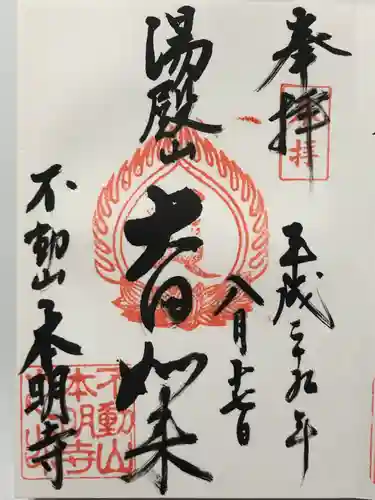 奉拝
奉拝
平成二十九年
八月十七日
湯殿山
大日如来
不動山本明寺
不動山
本明寺